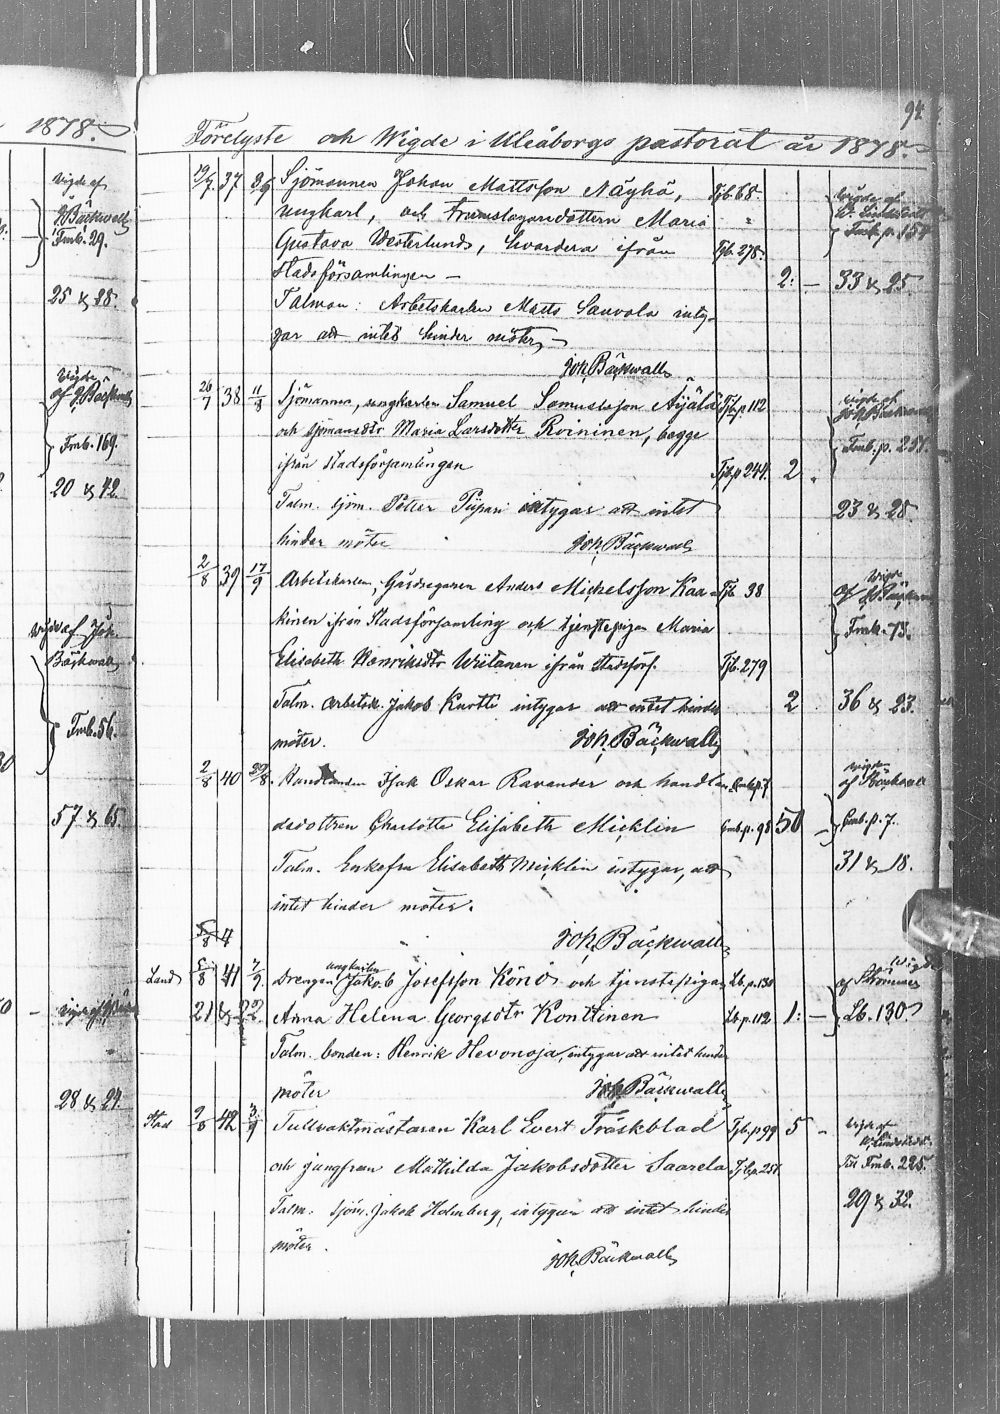 1878.
94
Förelyste och Wigde i Uleåborgs pastorat år 1878.
Wigde af
J Bäckwall
Fmb. 29.
25 & 28.
Wigde
af J Bäckwall
Fmb. 169.
20 & 42.
Wigde af Joh.
Bäckwall
Fmb. 56.
57 & 65.
28 & 24.
37 8/9 Sjömannen Johan Mattsson Näykä, Fjb. 68. Wigde af
ungkarl, och trumslagaredottern Maria W. Lindstedt
Gustava Westerlund, hvardera ifrån Fjb. 278. Fmb. p. 157
Stadsförsamlingen — 2: — 33 & 25.
Talman: Arbetskarlen Matts Sauvola inty-
gar att intet hinder möter —
Joh. Bäckwall
26/7 38 11/8 Sjömannen, ungkarlen Samuel Samuelsson Äijälä Fjb. p 112 Wigde af
Joh Bäckwall
och sjömansdtr Maria Larsdotter Roininen, begge Fmb. p. 251.
ifrån Stadsförsamlingen Fjb. p 244. 2.
Talm. sjöm. Petter Pijpari intygar att intet 23 & 28.
hinder möter Joh. Bäckwall
2/8 39 17/9 Arbetskarlen, Gårdsegaren Anders Michelsson Kaa- Fjb 38 Wigde
af J Bäckwall
kinen ifrån Stadsförsamling och tjenstepigan Maria Fmb. 73.
Elisabeth Henriksdtr Wiitanen ifrån stadsförs. Fjb. 279
Talm. arbetsk. Jakob Kurtti intygar att intet hinder 2 36 & 23.
möter. Joh. Bäckwall
2/8 40 30/8. Handlanden Isak Oskar Ravander och handlan- Embp. 7 Wigde
af Bäckwall
dsdottren Charlotta Elisabeth Micklin Emb. p. 98 50 — Emb. p. 7.
Talm. Enkefru Elisabeth Micklin intygar, att 31 & 18.
intet hinder möter.
5/8 4 Joh. Bäckwall
ungkarlen Wigde
Land 5/8 41 7/9 Drengen Jakob Josefsson Könö och tjenstepigan Lb. p. 130 af Strömmer
21 & 22. Anna Helena Georgsdtr Konttinen Lb. p. 112 1: — Lb. 130
Talm. bonden: Henrik Hevonoja, intygar att intet hinder
möter Joh. Bäckwall
Stad 9/8 42 3/9 Tullvaktmästaren Karl Evert Träskblad Fjb. p 99 5 — Wigde af
W. Lindstedt
och jungfrun Mathilda Jakobsdotter Saarela Fjb. p. 251 Till Fmb. 225.
Talm. sjöm. Jakob Holmberg, intygar att intet hinder 29 & 32.
möter.
Joh. Bäckwall